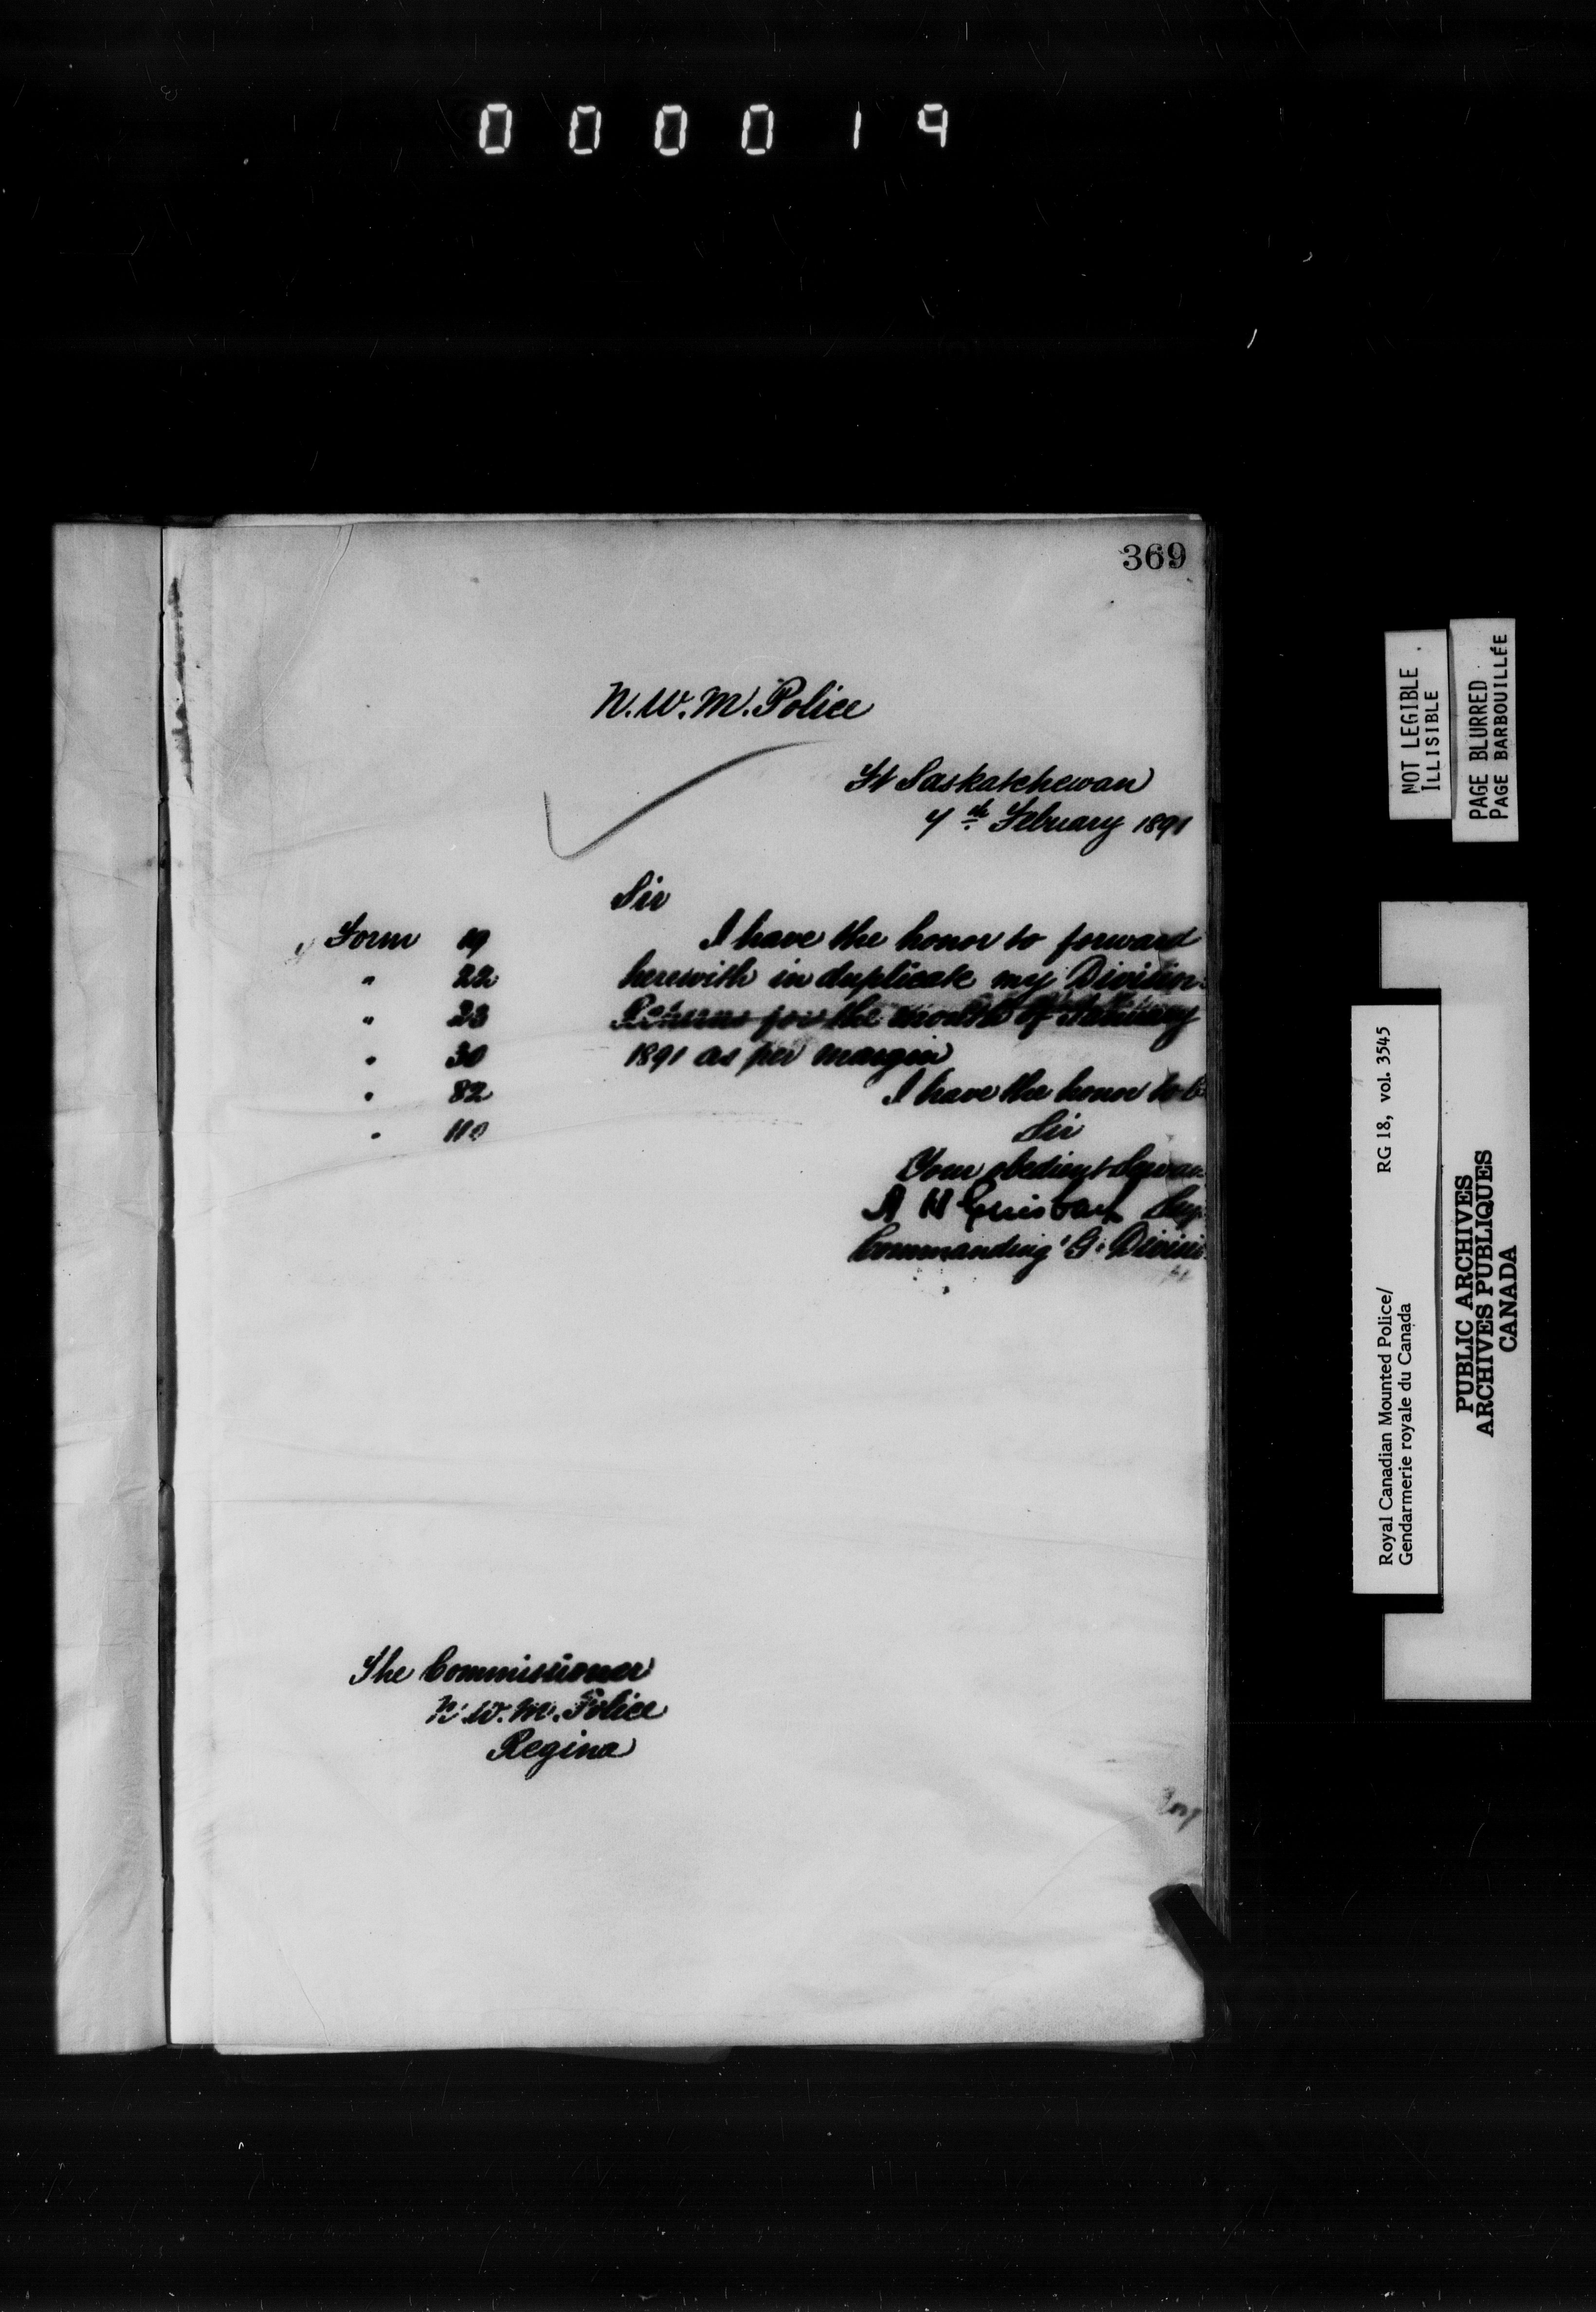 000019
369
N.W.M. Police
Ft Saskatchewan
7th February 1891
Sir
Form 19 I have the honor to forward
" 22 herewith in duplicate my Division
" 23 Returns for the month of January
" 30 1891 as per margin
" 82 I have the honor to b
" 110 Sir
Your obedient Servan
A H Griesbach Sup
Commanding 'G' Divisi
The Commissioner
N.W.M. Police
Regina
NOT LEGIBLE
ILLISIBLE
PAGE BLURRED
PAGE BARBOUILLÉE
Royal Canadian Mounted Police/ RG 18, vol. 3545
Gendarmerie royale du Canada
PUBLIC ARCHIVES
ARCHIVES PUBLIQUES
CANADA